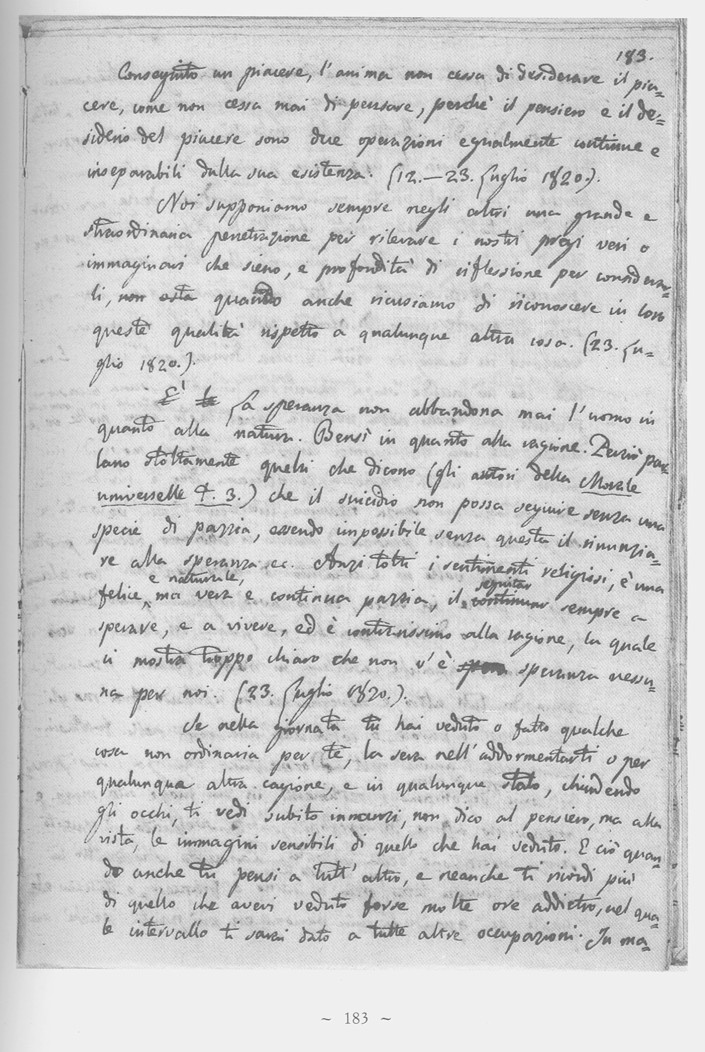 183.
Conseguito un piacere, l'anima non cessa di desiderare il pia=
cere, come non cessa mai di pensare, perchè il pensiero e il de=
siderio del piacere sono due operazioni egualmente continue e
inseparabili dalla sua esistenza. (12.—23. Luglio 1820.).
Noi supponiamo sempre negli altri una grande e
straordinaria penetrazione per rilevare i nostri pregi veri o
immaginari che sieno, e profondità di riflessione per considerar=
li, non ostante quando anche ricusiamo di riconoscere in loro
queste qualità rispetto a qualunque altra cosa. (23. Lu=
glio 1820.).
È La speranza non abbandona mai l'uomo in
quanto alla natura. Bensì in quanto alla ragione. Perciò par=
lano stoltamente quelli che dicono (gli autori della Morale
universelle t. 3.) che il suicidio non possa seguire senza una
specie di pazzia, essendo impossibile senza questa il rinunzia=
re alla speranza ec. Anzi tolti i sentimenti religiosi, è una
felice e naturale, ma vera e continua pazzia, il seguitar sempre a
sperare, e a vivere, ed è contrarissimo alla ragione, la quale
ci mostra troppo chiaro che non v'è speranza nessu=
na per noi. (23. Luglio 1820.).
Se nella giornata tu hai veduto o fatto qualche
cosa non ordinaria per te, la sera nell'addormentarti o per
qualunque altra cagione, e in qualunque stato, chiudendo
gli occhi, ti vedi subito innanzi, non dico al pensiero, ma alla
vista, le immagini sensibili di quello che hai veduto. E ciò quan=
do anche tu pensi a tutt'altro, e neanche ti ricordi più
di quello che avevi veduto forse molte ore addietro, nel qua=
le intervallo ti sarai dato a tutte altre occupazioni. In ma=
~ 183 ~